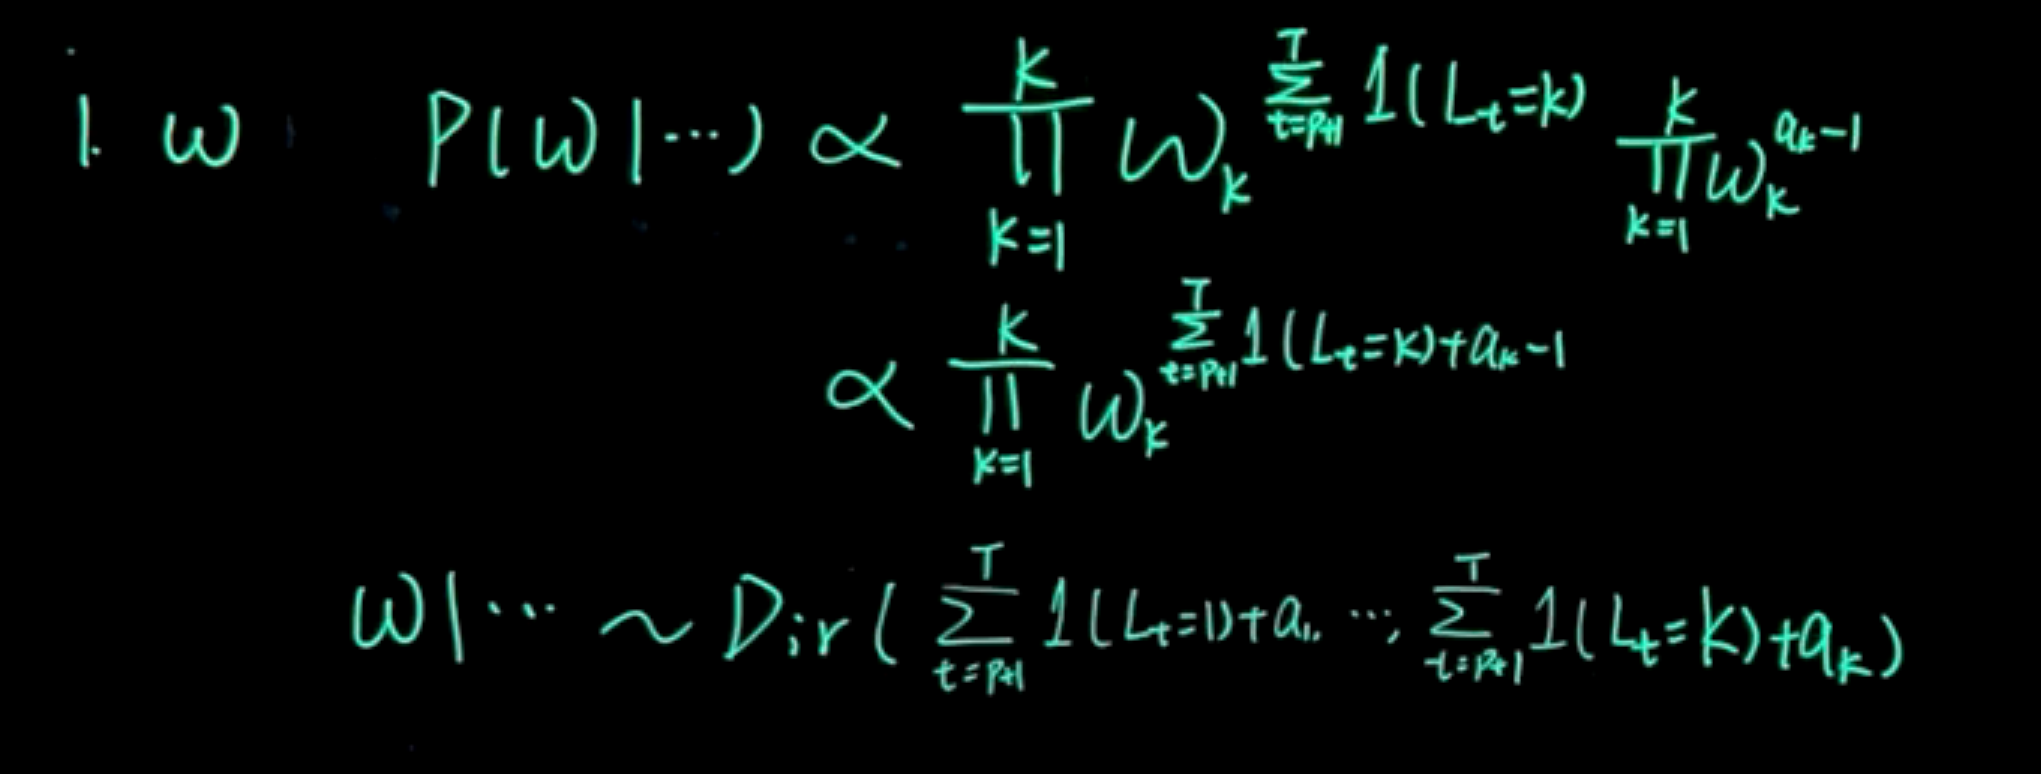 1. ω P(ω|⋯) ∝ ∏_{k=1}^{K} ω_k^{∑_{t=p+1}^{T} 1(L_t=k)} ∏_{k=1}^{K} ω_k^{a_k-1}
∝ ∏_{k=1}^{K} ω_k^{∑_{t=p+1}^{T} 1(L_t=k)+a_k-1}
ω|⋯ ~ Dir(∑_{t=p+1}^{T} 1(L_t=1)+a_1, ⋯, ∑_{t=p+1}^{T} 1(L_t=K)+a_k)